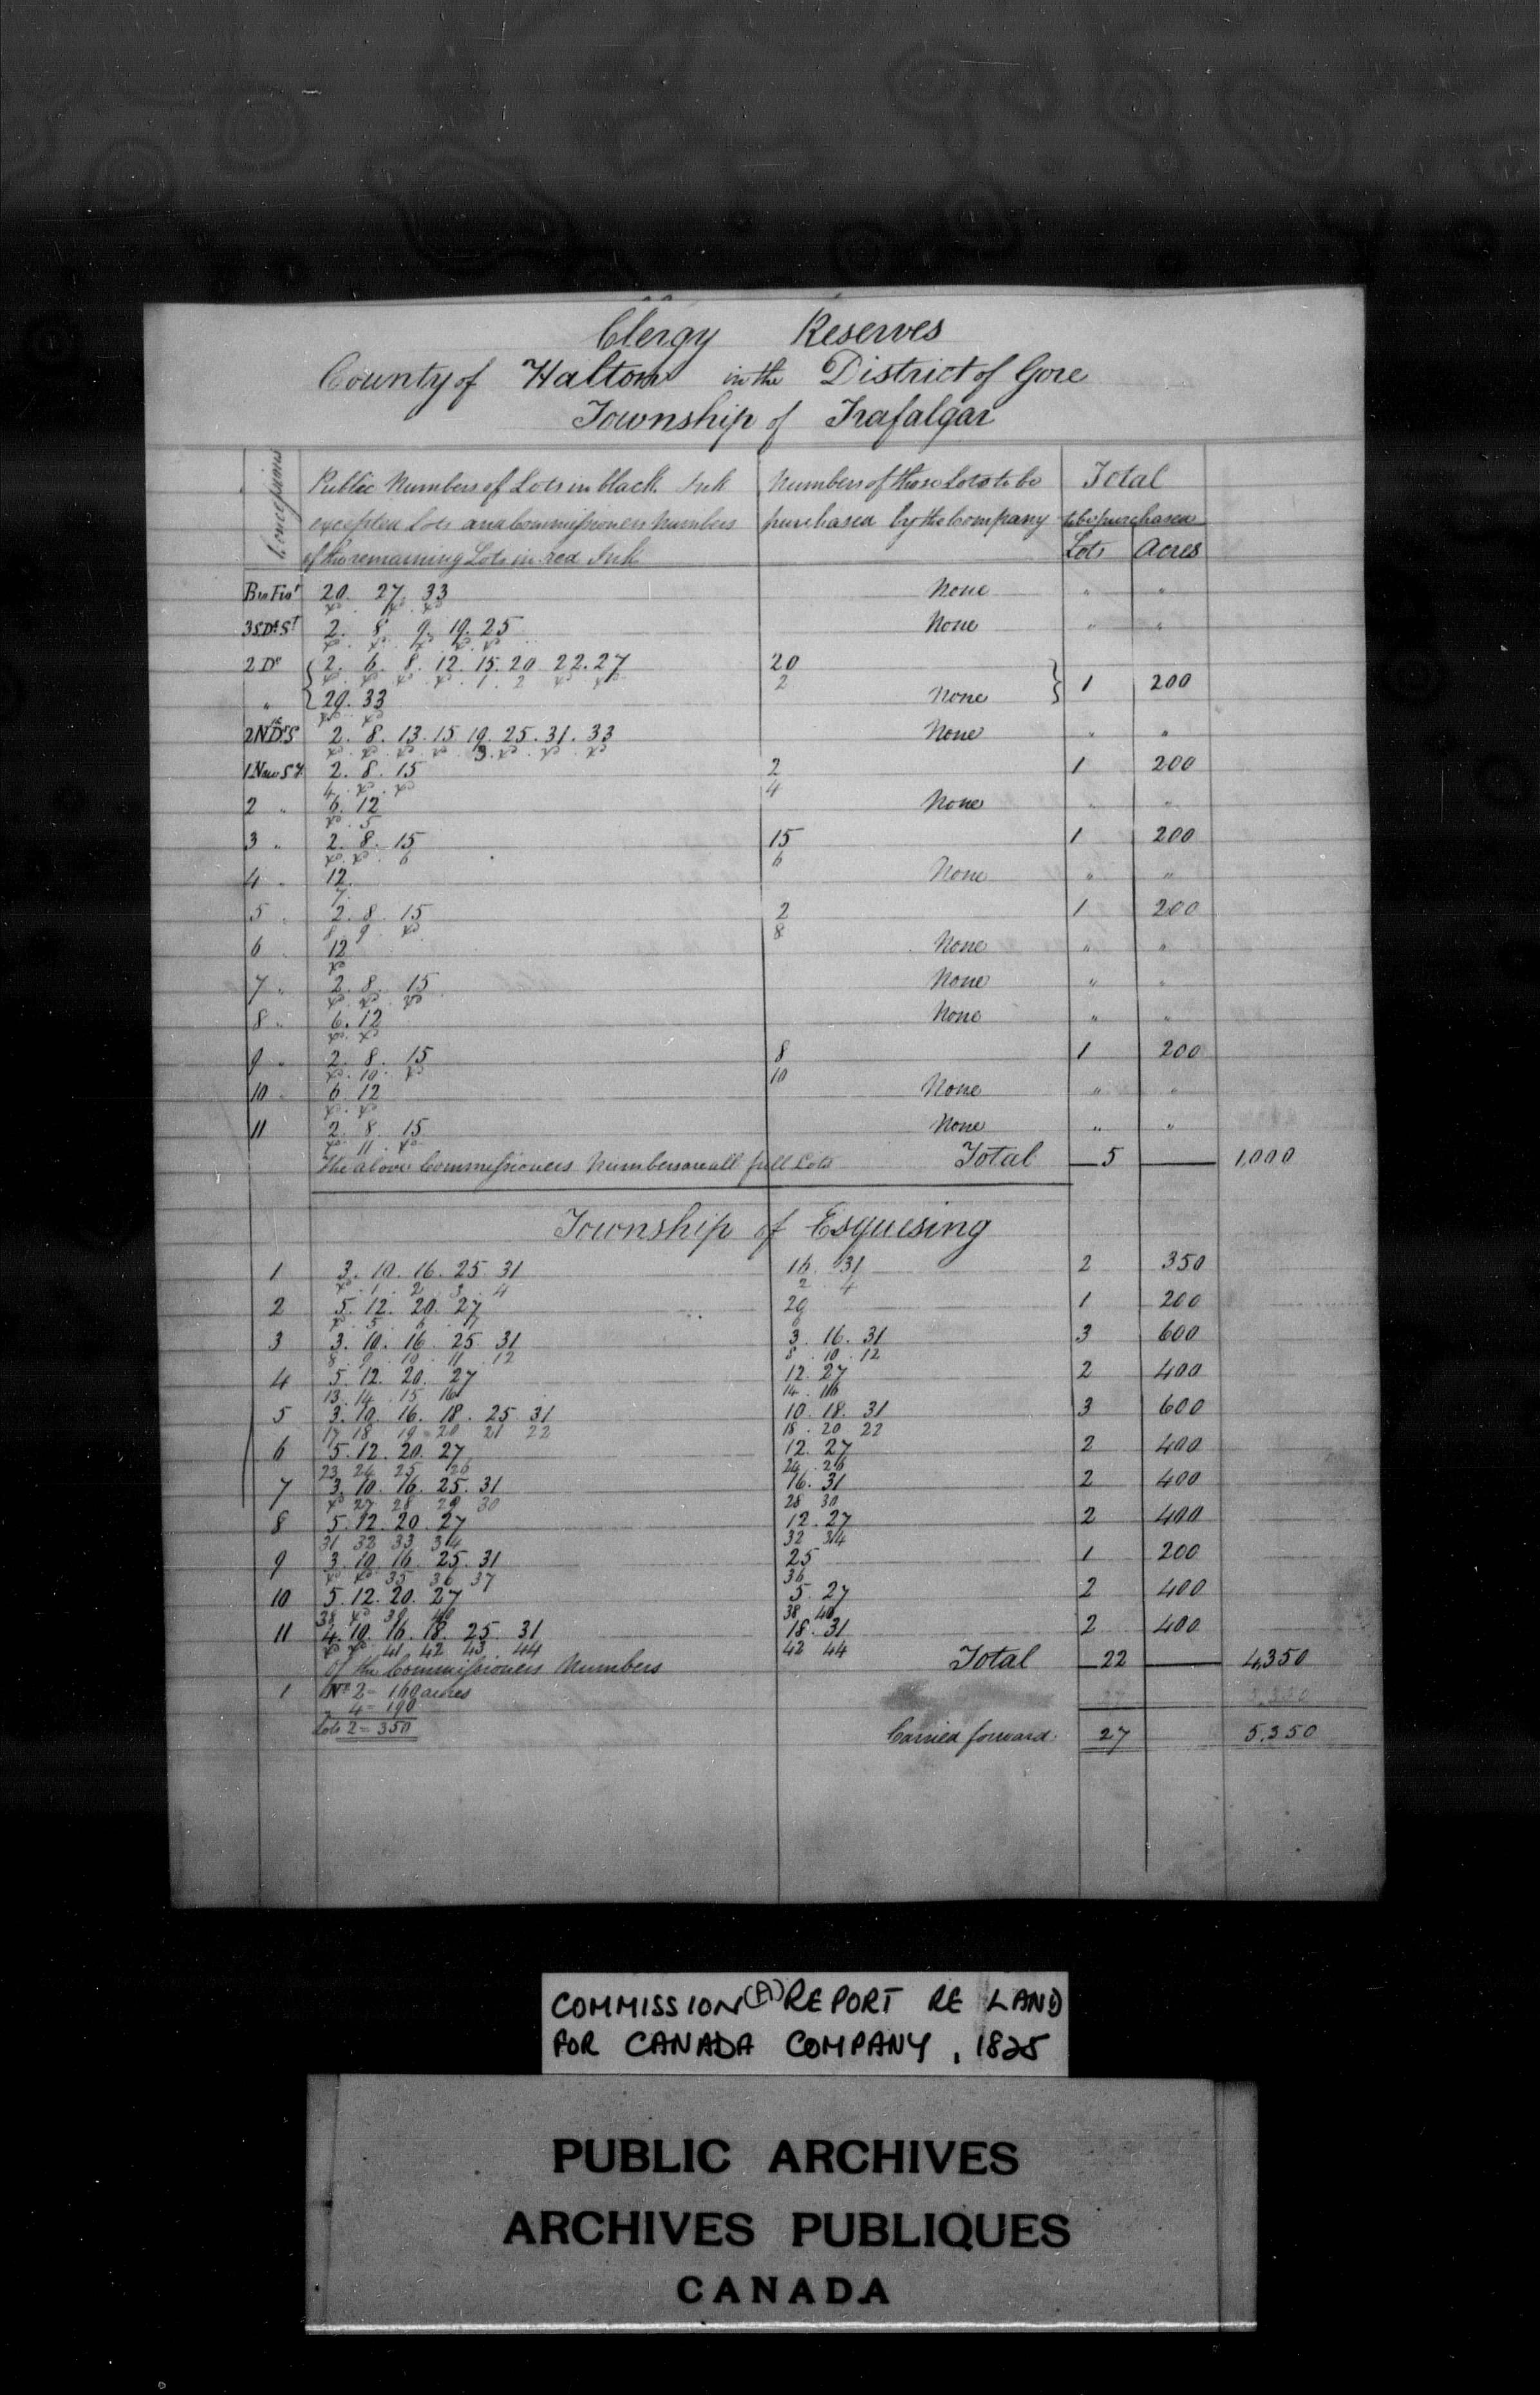 Clergy Reserves
County of Halton in the District of Gore
Township of Trafalgar
Concessions
Public Numbers of Lots in black Ink Numbers of those Lots to be Total
excepted Lots and Commissioners Numbers purchased by the Company to be purchased
of the remaining Lots in red Ink Lots Acres
20. 27. 33 None " "
xd . xd . xd
2. 8. 9. 19. 25 None " "
xd . xd . xd . xd . xd
2 Do 2. 6. 8. 12. 15. 20 22. 27 20
xd . xd . xd . xd . 1 . 2 xd xd 2 1 200
" 29. 33 None
xd xd
2. 8. 13. 15 19. 25. 31. 33 None " "
xd . xd . xd . xd . 3 . xd . xd . xd
1 New St 2. 8. 15 2 1 200
4 . xd . xd 4
2 " 6. 12 None " "
xd . 5
3 " 2. 8. 15 15 1 200
xd . xd . 6 6
4 " 12. None " "
7
5 " 2. 8. 15 2 1 200
8 . 9 . xd 8
6 " 12 None " "
xd
7 " 2. 8. 15 None " "
xd . xd . xd
8 " 6. 12 None " "
xd . xd
9 " 2. 8. 15 8 1 200
xd . 10 . xd 10
10 " 6 12 None " "
xd . xd
11 2. 8. 15 None " "
xd . 11 . xd
The above Commissioners Numbers are all full Lots Total 5 1,000
Township of Esquesing
1 3. 10. 16. 25 31 16. 31 2 350
xd . 1 . 2 . 3 . 4 2 4
2 5. 12. 20. 27 20 1 200
xd . 5 . 6 . 7 6
3 3. 10. 16. 25. 31 3. 16. 31 3 600
8 . 9 . 10 . 11 . 12 8 . 10 . 12
4 5. 12. 20. 27 12. 27 2 400
13. 14 . 15 16 14 . 16
5 3. 10. 16. 18. 25 31 10. 18. 31 3 600
17 18 19 20 21 22 18 . 20 22
6 5. 12. 20. 27 12. 27 2 400
23 24 25 26 24 . 26
7 3. 10. 16. 25. 31 16. 31 2 400
xd 27 28 29 30 28 30
8 5. 12. 20. 27 12. 27 2 400
31 32 33 34 32 34
9 3. 10. 16. 25. 31 25 1 200
xd xd 35 36 37 36
10 5. 12. 20. 27 5. 27 2 400
38 xd 39 40 38 40
11 4. 10. 16. 18. 25. 31 18. 31 2 400
xd xd 41 42 43 . 44 42 44
Of the Commissioners Numbers Total 22 4,350
1 No 2 = 160 acres
" 4 = 190
Lots 2 = 350 Carried forward 27 5,350
COMMISSION (A) REPORT RE LAND
FOR CANADA COMPANY, 1825
PUBLIC ARCHIVES
ARCHIVES PUBLIQUES
CANADA